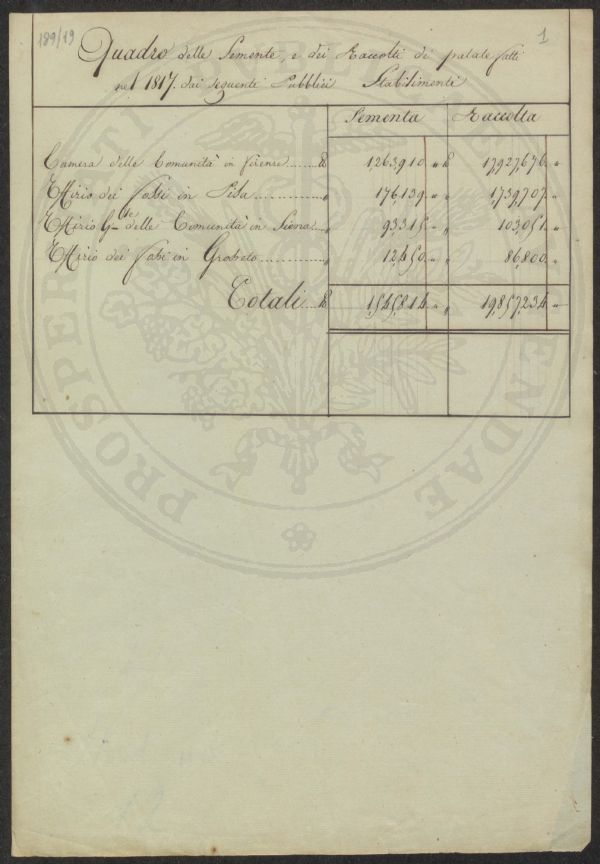 189/19
1
Quadro delle Semente, e dei Raccolti di patate fatti
nel 1817. dai seguenti Pubblici Stabilimenti
Sementa Raccolta
Camera delle Comunità in Firenze ....... ℔ 1,263,910 „ ℔ 17,927,676 „
Uffizio dei Fossi in Pisa .............. „ 176,139 „ „ 1,739,707 „
Uffizio G.le delle Comunità in Siena .. „ 93,315 „ „ 103,051 „
Uffizio dei Fossi in Grosseto ............. „ 12,450 „ „ 86,800 „
Totali .... ℔ 1,545,814 „ „ 19,857,234 „